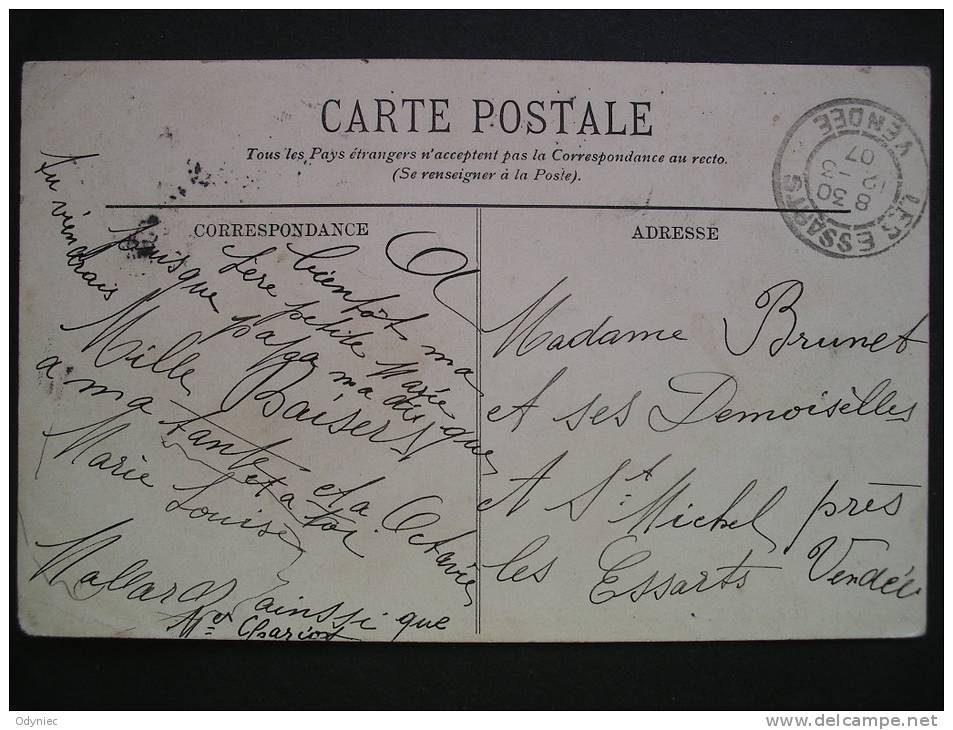 CARTE POSTALE
Tous les Pays étrangers n'acceptent pas la Correspondance au recto.
(Se renseigner à la Poste).
CORRESPONDANCE
A
bientôt ma
chère petite Marie
puisque papa m'a dis que
tu viendrais
Mille Baisers
a ma tante et a Octavie
et a toi
Marie Louise
Mallard ainssi que
Mer Chariot
ADRESSE
Madame Brunet
et ses Demoiselles
A St Michel près
les Essarts Vendée
LES ESSARTS
VENDEE
8 30
12 - 3
07
Odyniec
www.delcampe.net